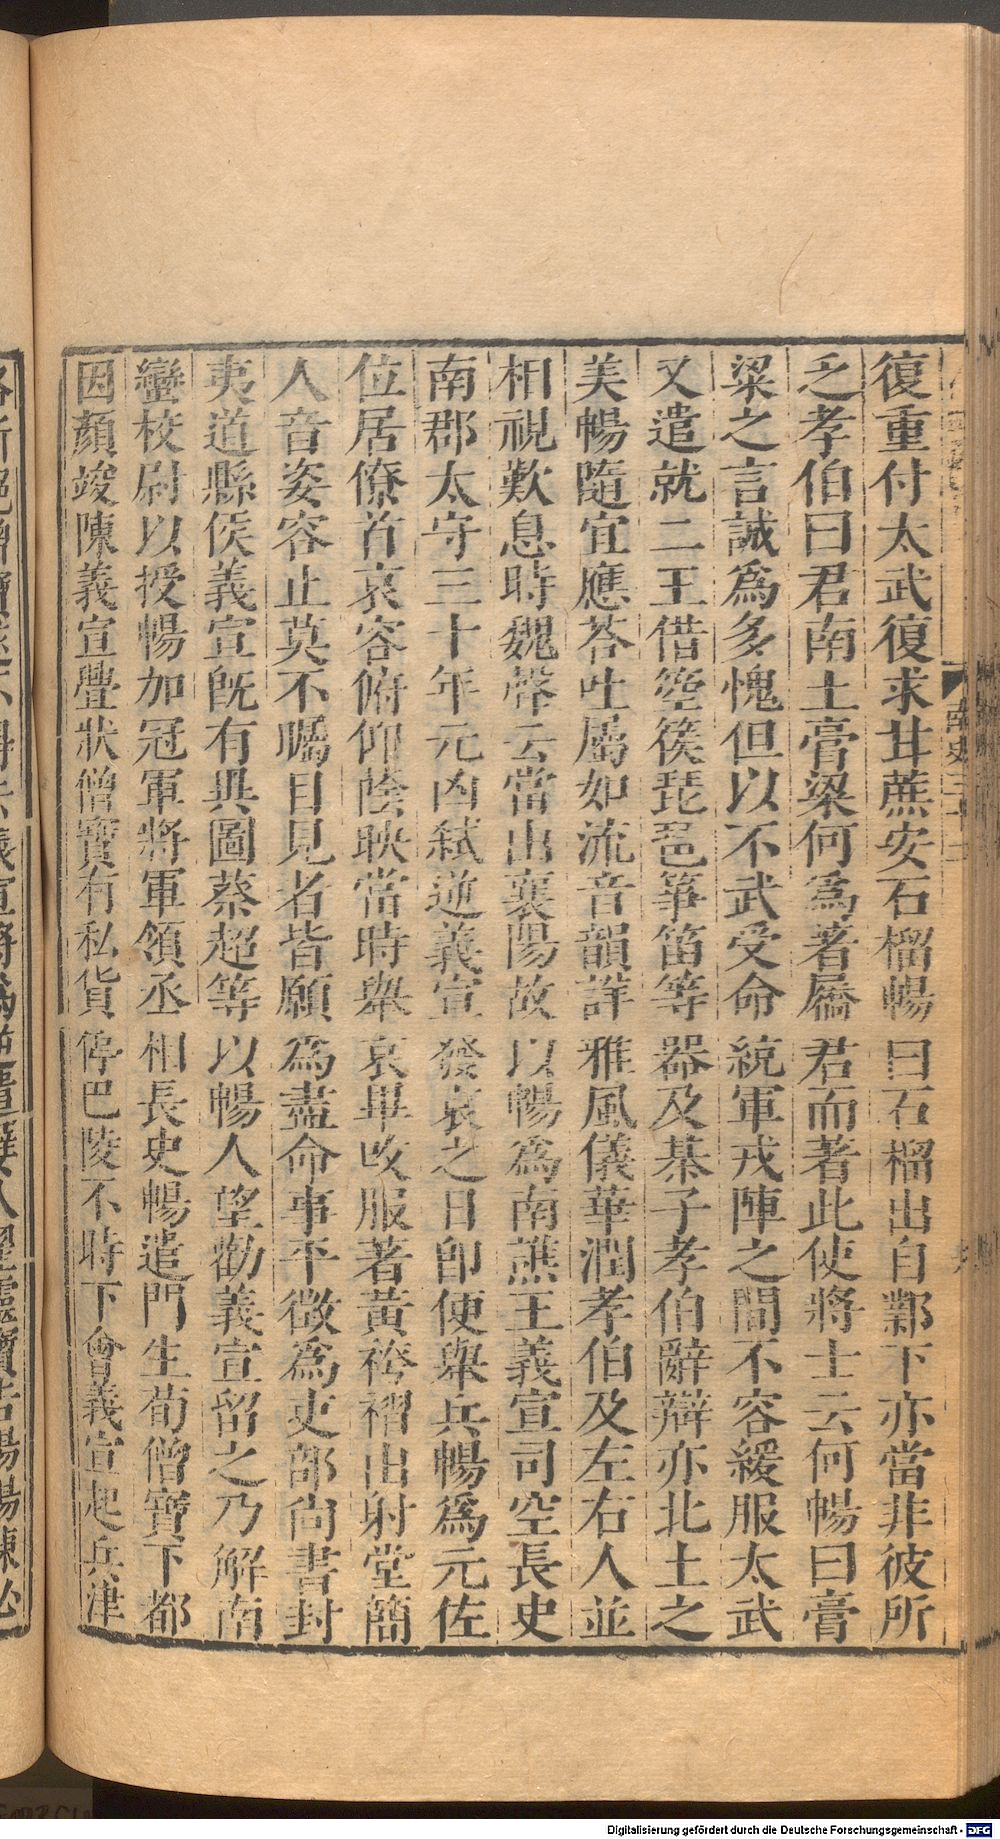 復重付太武復求甘蔗安石榴暢曰石榴出自鄴下亦當非彼所
乏孝伯曰君南土膏粱何爲著屩君而著此使將士云何暢曰膏
粱之言誠爲多愧但以不武受命統軍戎陣之間不容緩服太武
又遣就二王借箜篌琵琶箏笛等器及棊子孝伯辭辯亦北土之
美暢隨宜應荅吐屬如流音韻詳雅風儀華潤孝伯及左右人並
相視歎息時魏聲云當出襄陽故以暢爲南譙王義宣司空長史
南郡太守三十年元凶弑逆義宣發哀之日即便舉兵暢爲元佐
位居僚首哀容俯仰蔭映當時舉哀畢改服著黃袴褶出射堂簡
人音姿容止莫不矚目見者皆願爲盡命事平徵爲吏部尚書封
夷道縣侯義宣旣有異圖蔡超等以暢人望勸義宣留之乃解南
蠻校尉以授暢加冠軍將軍領丞相長史暢遣門生荀僧寶下都
因顏竣陳義宣舋狀僧寶有私貨停巴陵不時下會義宣起兵津
南史三十二
Digitalisierung gefördert durch die Deutsche Forschungsgemeinschaft - DFG